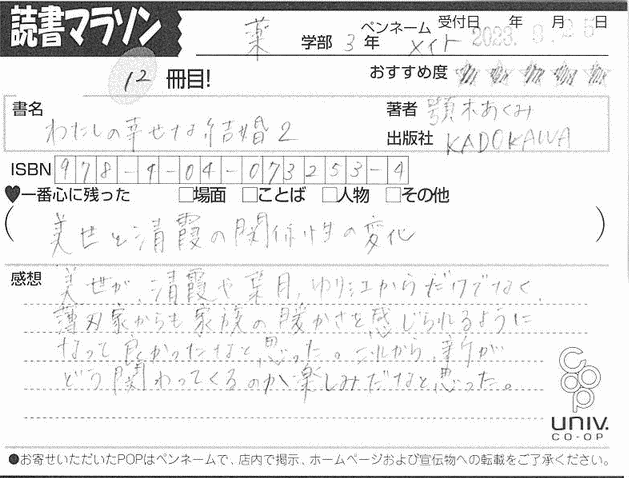 読書マラソン
薬 学部 3年 ペンネーム メイト 受付日 年 月 日
2023. 25
12 冊目! おすすめ度
書名 わたしの幸せな結婚2
著者 顎木あくみ
出版社 KADOKAWA
ISBN 978-4-04-073253-4
♥一番心に残った □場面 □ことば □人物 □その他
(美世と清霞の関係性の変化)
感想 美世が、清霞や葉月、ゆり江からだけでなく、
薄刃家からも家族の暖かさを感じられるように
なって良かったなと思った。これから、新が
どう関わってくるのか楽しみだなと思った。
coop
UNIV.
CO-OP
●お寄せいただいたPOPはペンネームで、店内で掲示、ホームページおよび宣伝物への転載をご了承ください。